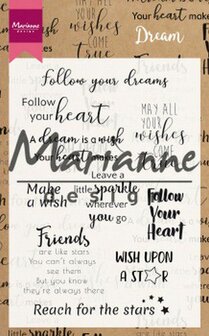 Marianne
DESIGN
your
wishes
COME
true
Dream
Follow your dreams
Follow
your heart
MAY ALL
YOUR
wishes
COME
A dream is a wish
Your heart makes
Marianne
design
Leave a
little sparkle
wherever
you go
Make
a wish
Follow
Your
Heart
Friends
are like stars
You can't always
see them
But you know
they're always there
WISH UPON
A STAR
Reach for the stars